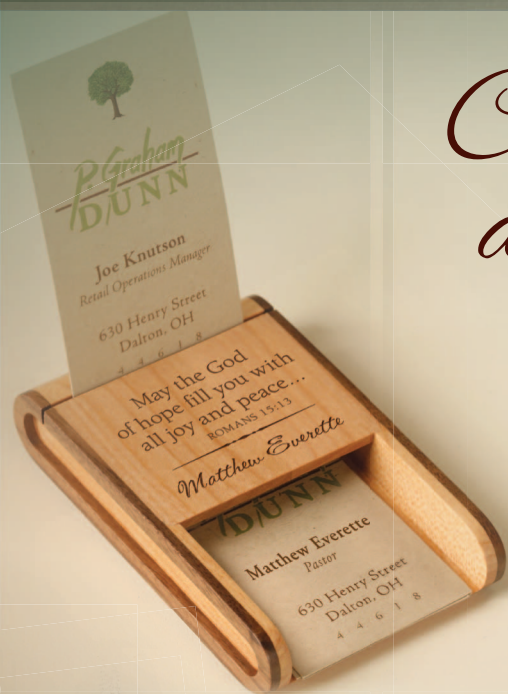 P. Graham
DUNN
Joe Knutson
Retail Operations Manager
630 Henry Street
Dalton, OH
4 4 6 1 8
May the God
of hope fill you with
all joy and peace...
ROMANS 15:13
Matthew Everette
DUNN
Matthew Everette
Pastor
630 Henry Street
Dalton, OH
4 4 6 1 8